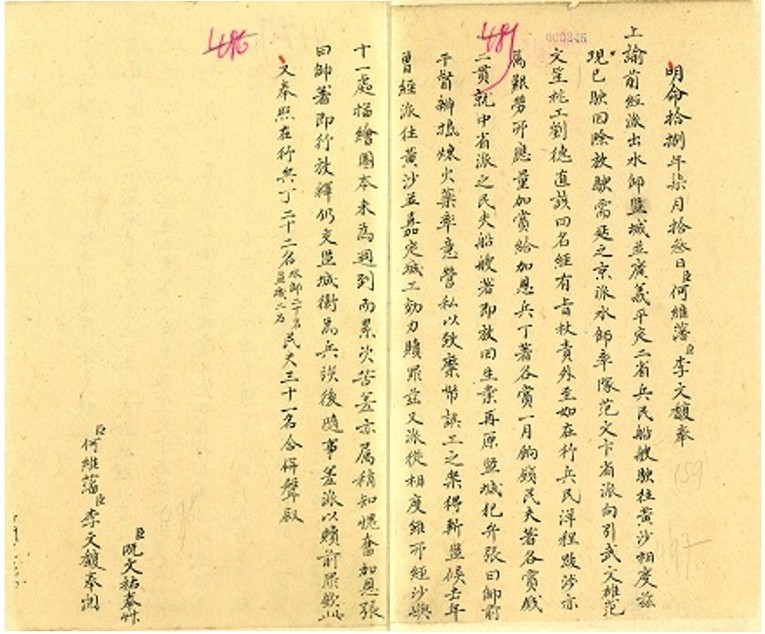 明命拾捌年柒月拾叁日臣何維藩臣李文馥奉
上諭前經派出水師監城並廣義平定二省兵民船艘駛往黃沙相度茲
現已駛回除放駛需延之京派水師率隊范文卞省派向引武文雄范
文笙桃工劉德直該四名經有旨杖責外至如在行兵民洋程跋涉亦
屬艱勞所應量加賞給加恩兵丁著各賞一月餉錢民夫著各賞錢
二貫就中省派之民夫船艘著即放回生業再原監城犯弁張曰帥前
于督辦搗煉火藥率意營私以致糜幣誤工之案得斬監候去年
曾經派往黃沙並嘉定城工効力贖罪茲又派從相度雖所經沙嶼
十一處描繪圖本未為週到而累次苦差亦屬稍知愧奮加恩張
曰帥著即行放釋仍交監城衛為兵俟後隨事差派以贖前罪欽此
又奉照在行兵丁二十二名水師二十名監城二名民夫三十一名合併聲敘
臣阮文祐奉艸
臣何維藩臣李文馥奉閱
486
489
000246
159
497